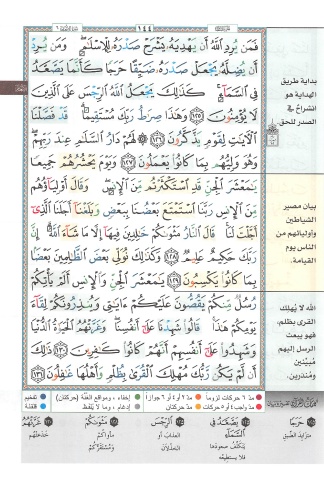 ١٤٤
فَمَن يُرِدِ ٱللَّهُ أَن يَهْدِيَهُۥ يَشْرَحْ صَدْرَهُۥ لِلْإِسْلَٰمِ ۖ وَمَن يُرِدْ
أَن يُضِلَّهُۥ يَجْعَلْ صَدْرَهُۥ ضَيِّقًا حَرَجًا كَأَنَّمَا يَصَّعَّدُ
فِى ٱلسَّمَآءِ ۚ كَذَٰلِكَ يَجْعَلُ ٱللَّهُ ٱلرِّجْسَ عَلَى ٱلَّذِينَ
لَا يُؤْمِنُونَ ١٢٥ وَهَٰذَا صِرَٰطُ رَبِّكَ مُسْتَقِيمًا ۗ قَدْ فَصَّلْنَا
ٱلْءَايَٰتِ لِقَوْمٍ يَذَّكَّرُونَ ١٢٦ ۞ لَهُمْ دَارُ ٱلسَّلَٰمِ عِندَ رَبِّهِمْ ۖ
وَهُوَ وَلِيُّهُم بِمَا كَانُوا۟ يَعْمَلُونَ ١٢٧ وَيَوْمَ يَحْشُرُهُمْ جَمِيعًا
يَٰمَعْشَرَ ٱلْجِنِّ قَدِ ٱسْتَكْثَرْتُم مِّنَ ٱلْإِنسِ ۖ وَقَالَ أَوْلِيَآؤُهُم
مِّنَ ٱلْإِنسِ رَبَّنَا ٱسْتَمْتَعَ بَعْضُنَا بِبَعْضٍ وَبَلَغْنَآ أَجَلَنَا ٱلَّذِىٓ
أَجَّلْتَ لَنَا ۚ قَالَ ٱلنَّارُ مَثْوَىٰكُمْ خَٰلِدِينَ فِيهَآ إِلَّا مَا شَآءَ ٱللَّهُ ۗ إِنَّ
رَبَّكَ حَكِيمٌ عَلِيمٌ ١٢٨ وَكَذَٰلِكَ نُوَلِّى بَعْضَ ٱلظَّٰلِمِينَ بَعْضًۢا
بِمَا كَانُوا۟ يَكْسِبُونَ ١٢٩ يَٰمَعْشَرَ ٱلْجِنِّ وَٱلْإِنسِ أَلَمْ يَأْتِكُمْ
رُسُلٌ مِّنكُمْ يَقُصُّونَ عَلَيْكُمْ ءَايَٰتِى وَيُنذِرُونَكُمْ لِقَآءَ
يَوْمِكُمْ هَٰذَا ۚ قَالُوا۟ شَهِدْنَا عَلَىٰٓ أَنفُسِنَا ۖ وَغَرَّتْهُمُ ٱلْحَيَوٰةُ ٱلدُّنْيَا
وَشَهِدُوا۟ عَلَىٰٓ أَنفُسِهِمْ أَنَّهُمْ كَانُوا۟ كَٰفِرِينَ ١٣٠ ذَٰلِكَ
أَن لَّمْ يَكُن رَّبُّكَ مُهْلِكَ ٱلْقُرَىٰ بِظُلْمٍ وَأَهْلُهَا غَٰفِلُونَ ١٣١
بداية طريق
الهداية هو
انشراح في
الصدر للحق
بيان مصير
الشياطين
وأوليائهم من
الناس يوم
القيامة.
الله لا يُهلك
القرى بظلم،
فهو يبعث
الرسل إليهم
مُبيِّنين
ومُنذرين.
مدّ ٦ حركات لزوماً
مدّ ٢ أو ٤ أو ٦ جوازاً
إخفاء، ومواقع الغُنَّة (حركتان)
تفخيم
مدّ واجب ٤ أو ٥ حركات
مدّ حركتان
إدغام، وما لا يُلفظ
قلقلة
حَرَجًا
متزايد الضيق
يَصَّعَّدُ فِى ٱلسَّمَآءِ
يتكلف صعودها
فلا يستطيعه
ٱلرِّجْسَ
العذاب أو
الخذلان
مَثْوَىٰكُمْ
مأواكم
ومستقرُّكم
غَرَّتْهُمُ
خدعتهم